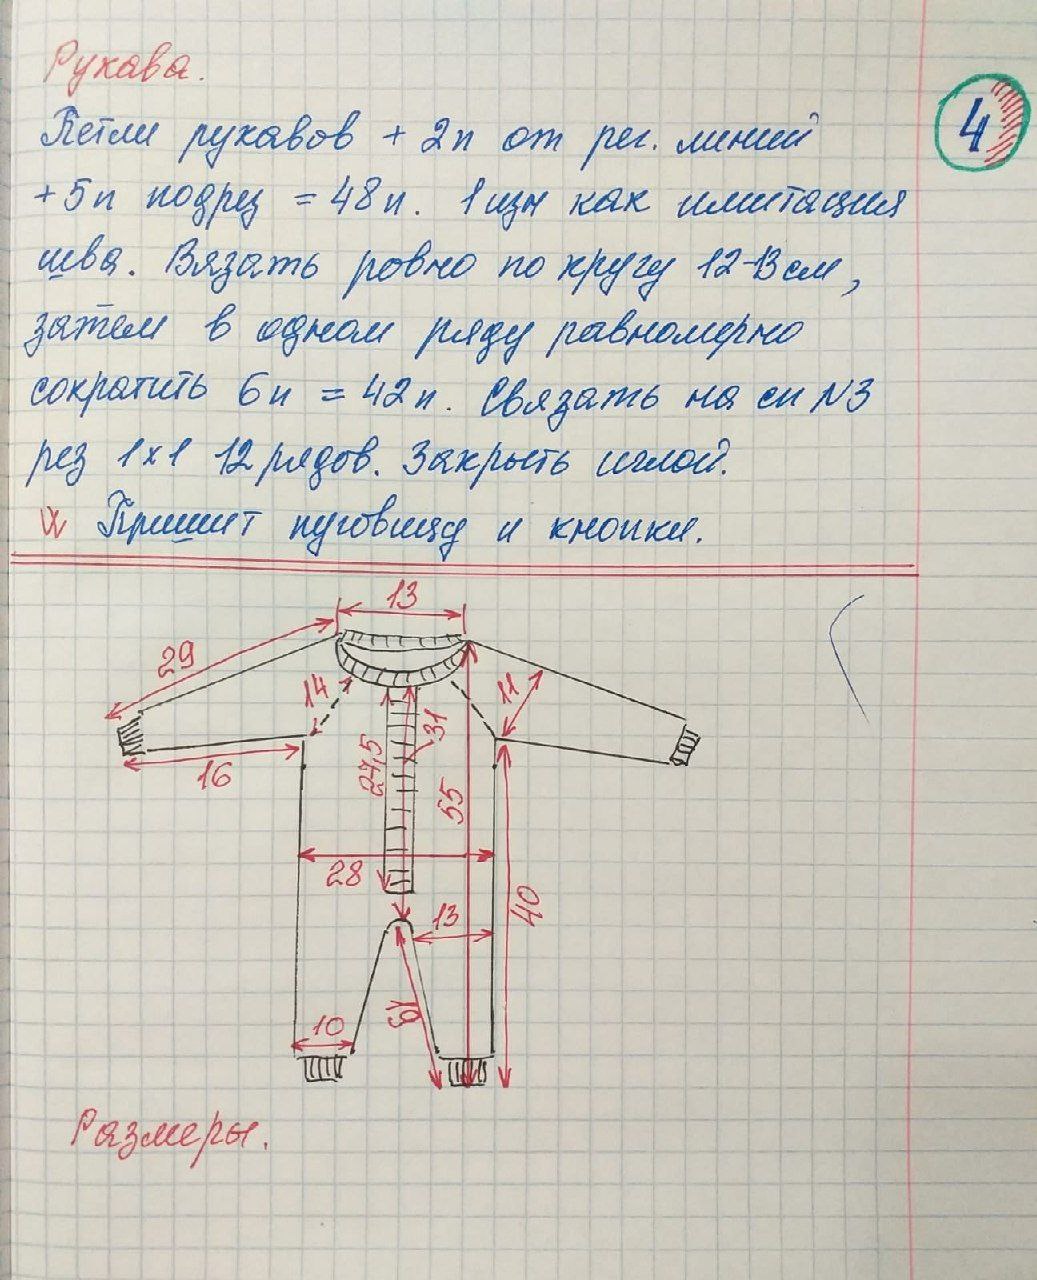 Рукава.
4
Петли рукавов + 2п от рег. линий
+ 5п подрез = 48п. 1 изн как имитация
шва. Вязать ровно по кругу 12-13 см,
затем в одном ряду равномерно
сократить 6п = 42п. Связать на сп N3
рез 1x1 12 рядов. Закрыть иглой.
Пришит пуговицы и кнопки.
13
29
14
11
31
16
27,5
55
28
40
13
19
10
Размеры.